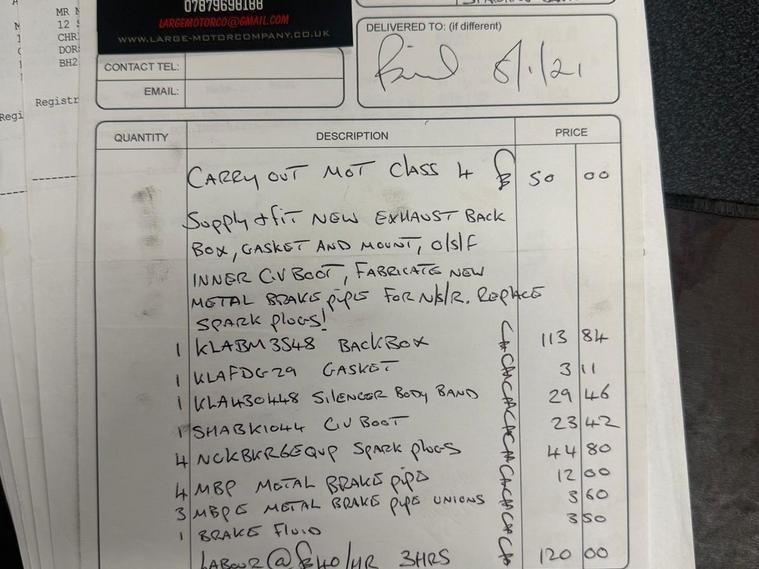 MR
12
CHR
DOR
BH2
Registr
Regi
07879698188
LARGEMOTORCO@GMAIL.COM
WWW.LARGE-MOTORCOMPANY.CO.UK
CONTACT TEL:
EMAIL:
DELIVERED TO: (if different)
8/1/21
QUANTITY DESCRIPTION PRICE
CARRY OUT MOT CLASS 4 £ 50 00
Supply & fit NEW EXHAUST BACK
BOX, GASKET AND MOUNT, O/S/F
INNER C.V BOOT, FABRICATE NEW
METAL BRAKE pipes FOR N/S/R. REPLACE
SPARK plugs!
1 KLABM3548 BACKBOX £ 113 84
1 KLAFDG29 GASKET £ 3 11
1 KLA430448 SILENCER BODY BAND £ 29 46
1 SHABK1044 C.V BOOT £ 23 42
4 NGKBKR6EQUP SPARK plugs £ 44 80
4 MBP METAL BRAKE pipe £ 12 00
3 MBPE METAL BRAKE pipe UNIONS £ 3 60
1 BRAKE FLUID £ 3 50
LABOUR @ £40/HR 3HRS £ 120 00